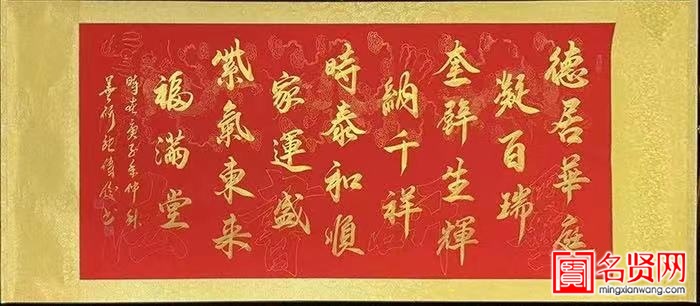 德居華庭
凝百瑞
奎璧生輝
納千祥
時泰和順
家運盛
紫氣東来
福满堂
時在庚子年仲秋
書
名贤网
mingxianwang.com